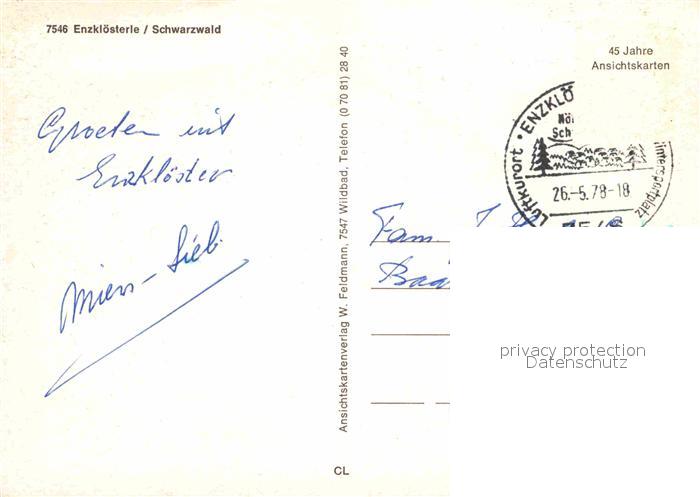 7546 Enzklösterle / Schwarzwald
Groeten uit
Enzklöster
Mien - Sieb.
Ansichtskartenverlag W. Feldmann, 7547 Wildbad, Telefon (0 70 81) 28 40
CL
45 Jahre
Ansichtskarten
Luftkurort · ENZKLÖ
Wintersportplatz
Nör
Sch
26.-5.78-18
7546
Fam.
Baa
privacy protection
Datenschutz